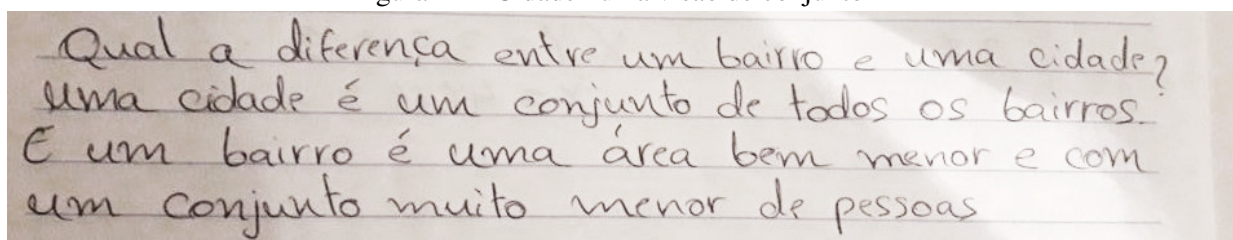 Qual a diferença entre um bairro e uma cidade?
uma cidade é um conjunto de todos os bairros.
E um bairro é uma área bem menor e com
um conjunto muito menor de pessoas